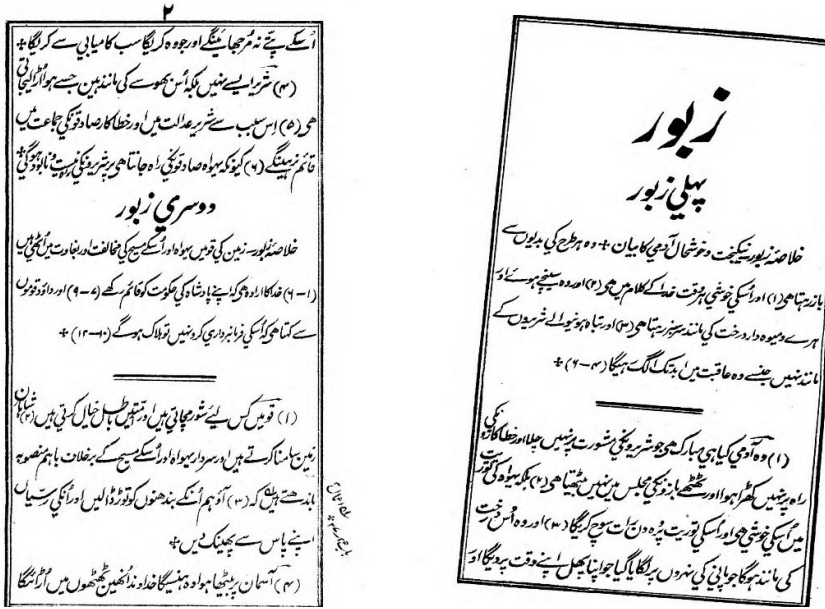 زبور
پہلي زبور
خلاصۂ زبور نیکبخت و خوشحال آدمي کا بیان * وہ ہر طرح کي بدیوں سے
باز رہتا هي (۱) اور اُسکي خوشي ہر وقت خدا کے کلام میں هي (۲) اور وہ سینچے ہوئے اور
ہرے و میوہ دار درخت کي مانند سرسبز رہتا هي (۳) اور تباہ ہونیوالے شریروں کے
مانند نہیں جنسے وہ عاقبت میں ابد تک الگ رہیگا (۴-۶) *
(۱) وہ آدمي کیا ہي مبارک هي جو شریرونکي مشورت پر نہیں چلا اور خطاکارونکي
راہ پر نہیں کھڑا ہوا اور ٹھٹھے بازونکي مجلس میں نہیں بیٹھا هي (۲) بلکہ یہواہ کي توریت
میں اُسکي خوشي هي اور اُسکي توریت پر وہ دن رات سوچ کریگا (۳) اور وہ اُس درخت
کي مانند ہوگا جو پاني کي نہروں پر لگایا گیا جو اپنا پھل اپنے وقت پر دیگا اور
۲
اُسکے پتّے نہ مُرجھائینگے اور جو وہ کریگا سب کامیابي سے کریگا *
(۴) شریر ایسے نہیں بلکہ اُس بھوسے کي مانند ہین جسے ہوا اُڑا لیجاتي
هي (۵) اِس سبب سے شریر عدالت میں اور خطاکار صادقونکي جماعت میں
قائم نہ رہینگے (۶) کیونکہ یہواہ صادقونکي راہ جانتا هي پر شریرونکي راہ نیست و نابود ہوگي *
دوسري زبور
خلاصۂ زبور - زمین کي قومیں یہواہ اور اُسکے مسیح کي مخالفت اور بغاوت میں اُٹھي ہیں
(۱-۶) خدا کا ارادہ هي کہ اپنے بادشاہ کي حکومت کو قائم رکھے (۷-۹) اور داؤد قوموں
سے کہتا هي کہ اُسکي فرمانبرداري کرو نہیں تو ہلاک ہوگے (۱۰-۱۲) *
(۱) قومیں کس لیئے شور مچاتي ہیں اور اُمّتیں باطل خیال کرتي ہیں (۲) شاہان
زمین سامنا کرتے ہیں اور سردار یہواہ اور اُسکے مسیح کے برخلاف باہم منصوبہ
باندھتے ہیں کہ (۳) آؤ ہم اُنکے بندھنوں کو توڑ ڈالیں اور اُنکي رسّیاں
اپنے پاس سے پھینک دیں *
(۴) آسمان پر بیٹھا ہوا وہ ہنسیگا خداوند اُنھیں ٹھٹھوں میں اُڑائیگا